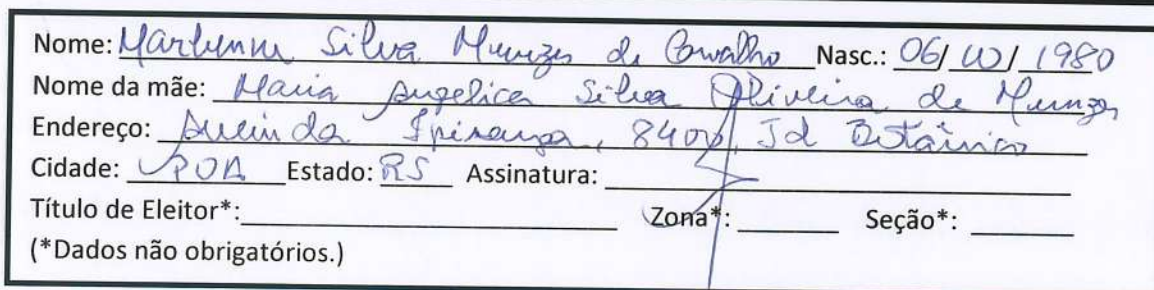 Nome: Silva Menezes de Carvalho Nasc.: 06/10/1980
Nome da mãe: Maria Angelica Silva Oliveira de Menezes
Endereço: Avenida Ipiranga, 8400, Jd Botânico
Cidade: POA Estado: RS Assinatura:
Título de Eleitor*: Zona*: Seção*:
(*Dados não obrigatórios.)